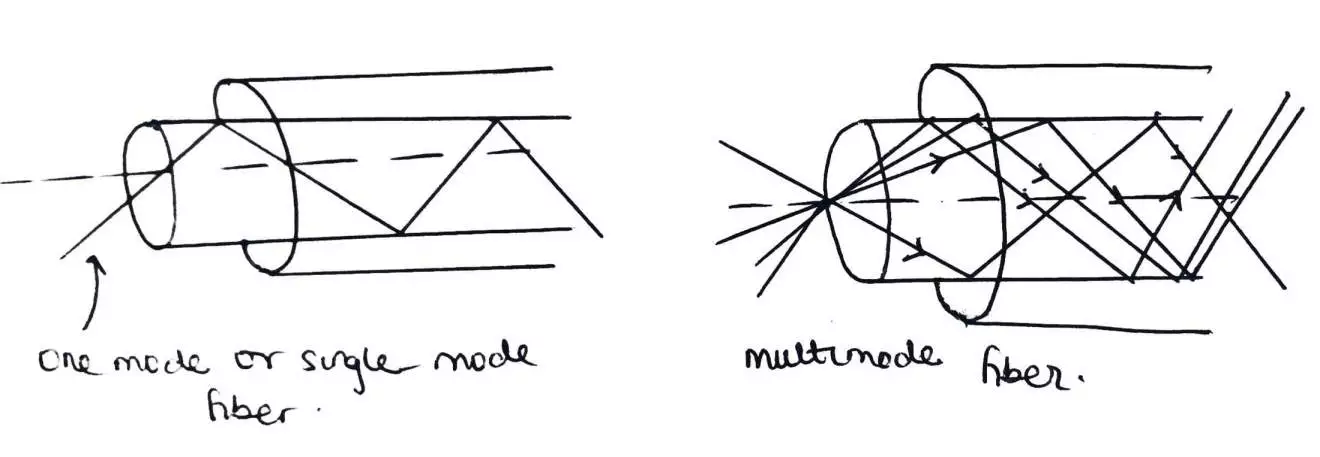 one mode or single mode
fiber.
multimode fiber.